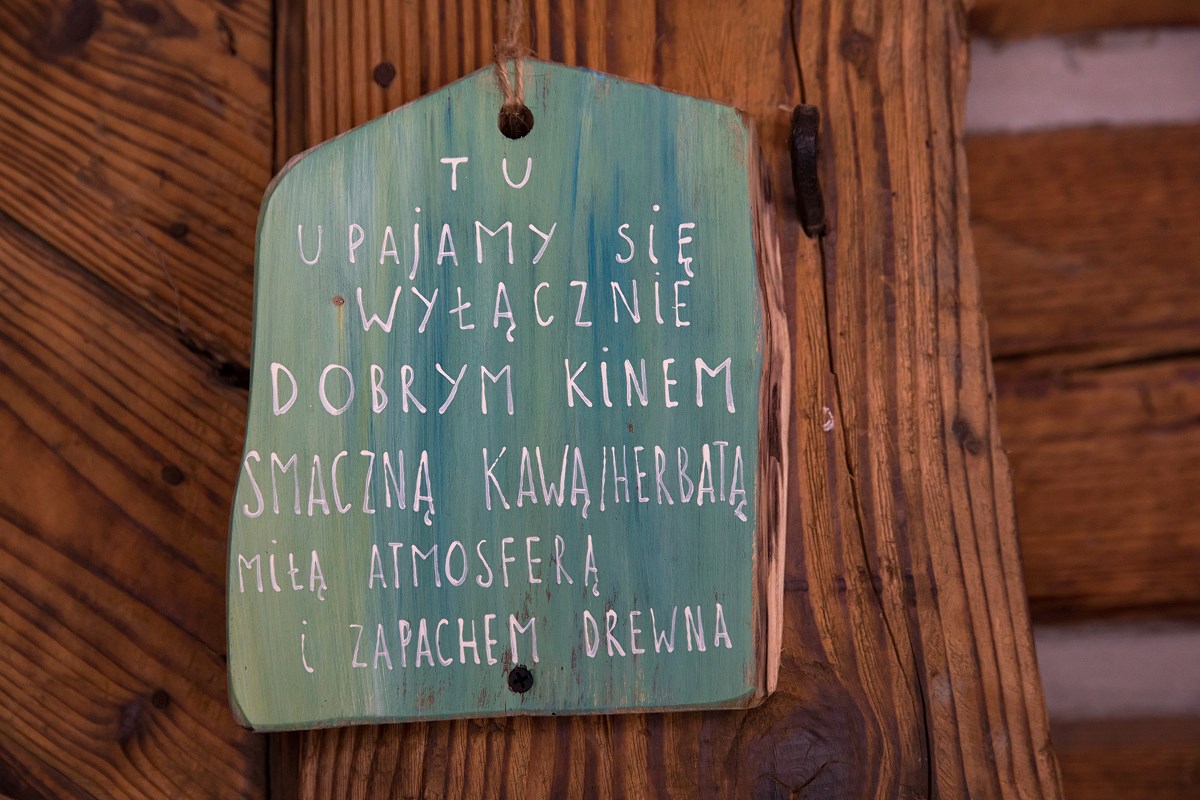 TU
UPAJAMY SIĘ
WYŁĄCZNIE
DOBRYM KINEM
SMACZNĄ KAWĄ/HERBATĄ
MIŁĄ ATMOSFERĄ
i ZAPACHEM DREWNA